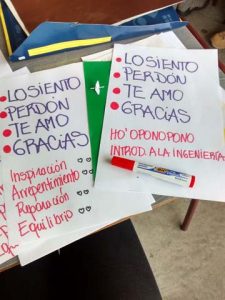 LO SIENTO
PERDÓN
TE AMO
GRACIAS
Inspiración
Arrepentimiento
Reparación
Equilibrio
LO SIENTO
PERDÓN
TE AMO
GRACIAS
HO'OPONOPONO
INTROD. A LA INGENIERÍA